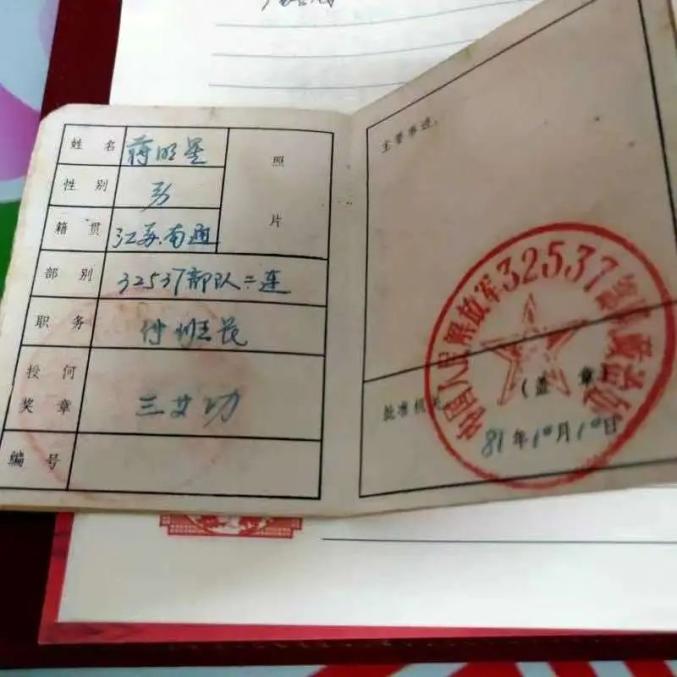 姓 名 蒋明星
照 片
性 别 男
籍 贯 江苏南通
部 别 32537部队二连
职 务 付班长
授 何 奖 章 三等功
编 号
主要事迹:
中国人民解放军32537部队政治处
批准机关
(盖 章)
81年10月10日